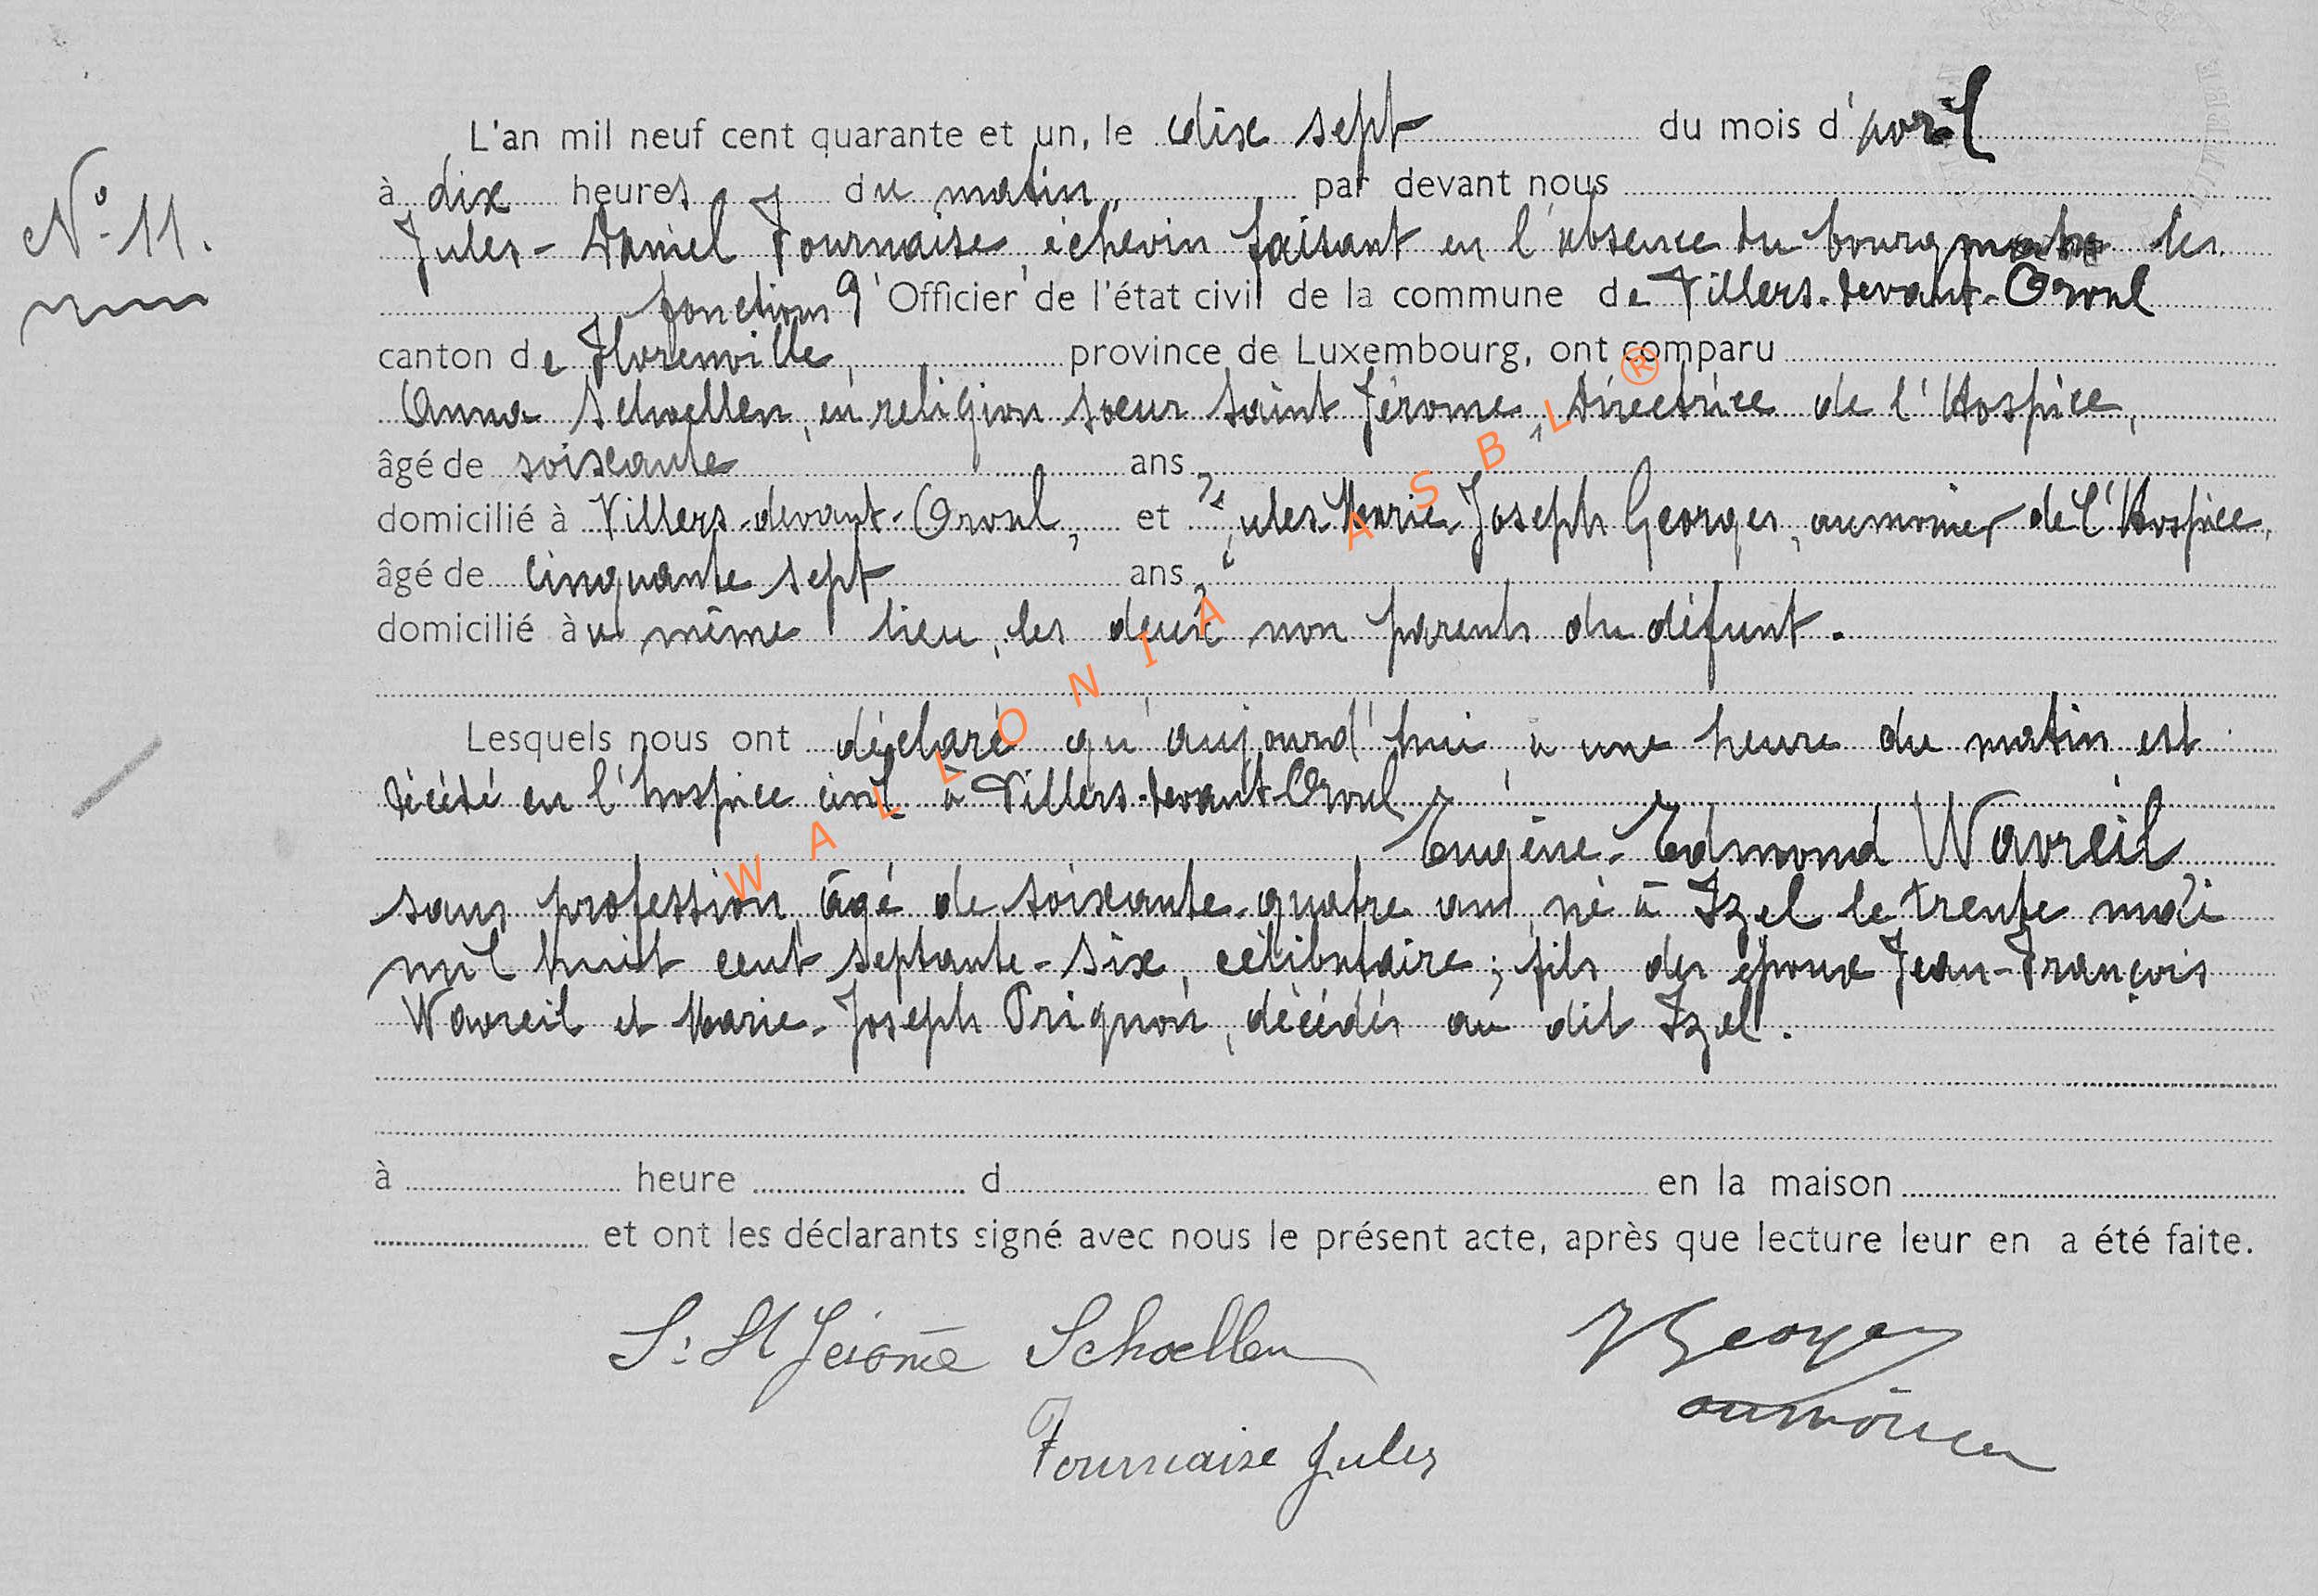 L'an mil neuf cent quarante et un, le dix sept du mois d'avril
N° 11.
à dix heures du matin, par devant nous
Jules-Daniel Fournaise, échevin faisant en l'absence du bourgmestre les
fonctions d'Officier de l'état civil de la commune de Villers-devant-Orval
canton de Florenville, province de Luxembourg, ont comparu
Anna Schoellen, en religion soeur Saint Jérome, Directrice de l'Hospice,
âgé de soixante ans
domicilié à Villers-devant-Orval, et Jules-Marie-Joseph Georges, aumonier de l'Hospice,
âgé de cinquante sept ans,
domicilié au même lieu, les deux non parents du défunt.
Lesquels nous ont déclaré qu'aujourd'hui à une heure du matin est
décédé en l'hospice civil à Villers-devant-Orval
Eugène-Edmond Wavreil
sans profession, âgé de soixante-quatre ans, né à Izel le trente mai
mil huit cent septante-six, célibataire; fils des époux Jean-François
Wavreil et Marie-Joseph Prignon, décédés au dit Izel.
à heure d en la maison
et ont les déclarants signé avec nous le présent acte, après que lecture leur en a été faite.
S: St Jérome Schoellen
JGeorges
aumônier
Fournaise Jules
WALLONIA ASBL®